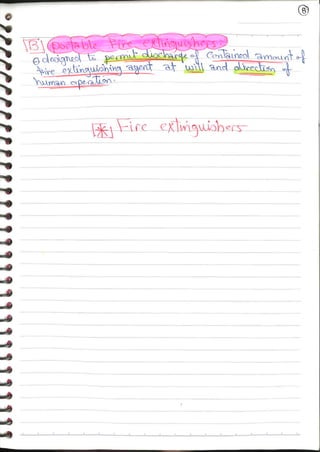 8
[B] Portable Fire extinguishers:
designed to permit discharge of contained ammount of
fire extinguishing agent at will and direction of
human operation.
[*] Fire extinguishers